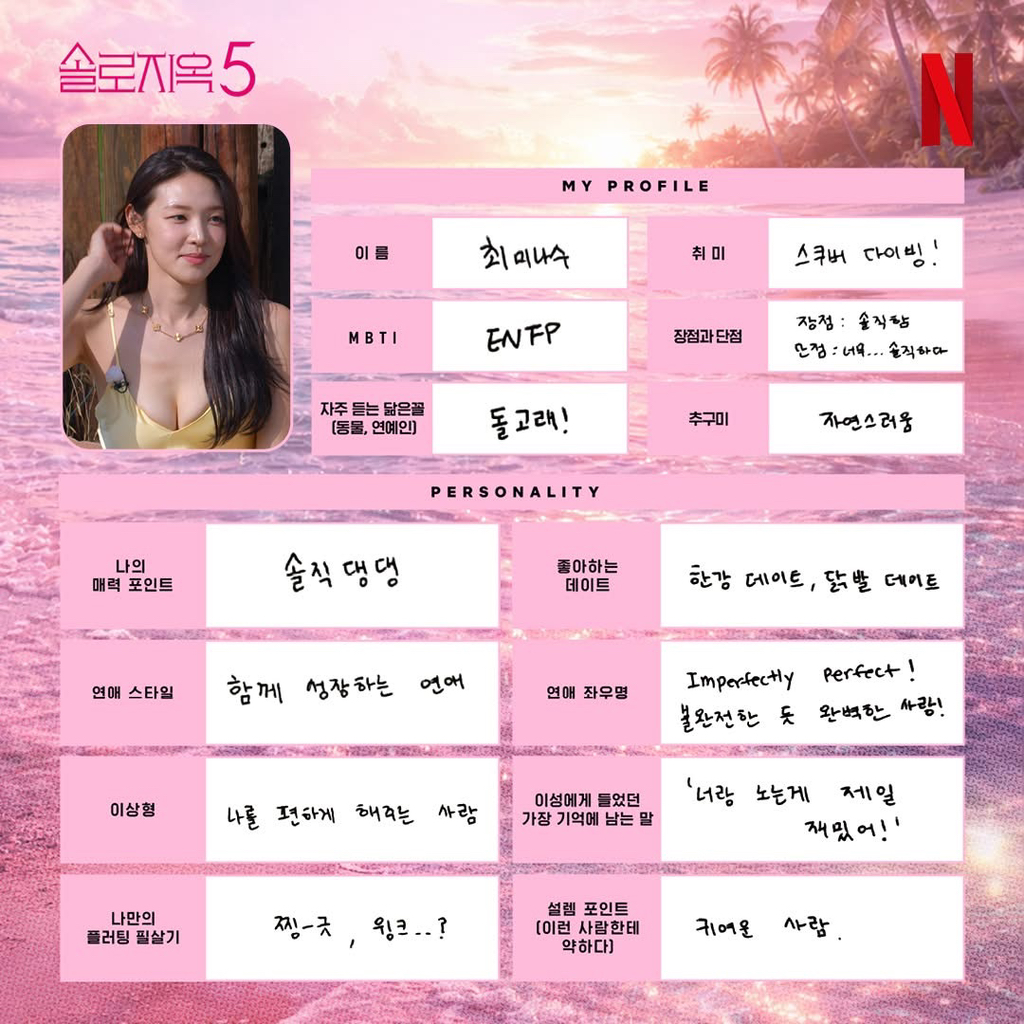 솔로지옥5
N
MY PROFILE
이름
최미나수
취미
스쿠버 다이빙!
MBTI
ENFP
장점과 단점
장점 : 솔직함
단점 : 너무... 솔직하다
자주 듣는 닮은꼴
(동물, 연예인)
돌고래!
추구미
자연스러움
PERSONALITY
나의
매력 포인트
솔직 댕댕
좋아하는
데이트
한강 데이트, 닭발 데이트
연애 스타일
함께 성장하는 연애
연애 좌우명
Imperfectly perfect!
불완전한 듯 완벽한 사랑!
이상형
나를 편하게 해주는 사람
이성에게 들었던
가장 기억에 남는 말
'너랑 노는게 제일
재밌어!'
나만의
플러팅 필살기
찜-긋, 윙크..?
설렘 포인트
(이런 사람한테
약하다)
귀여운 사람.